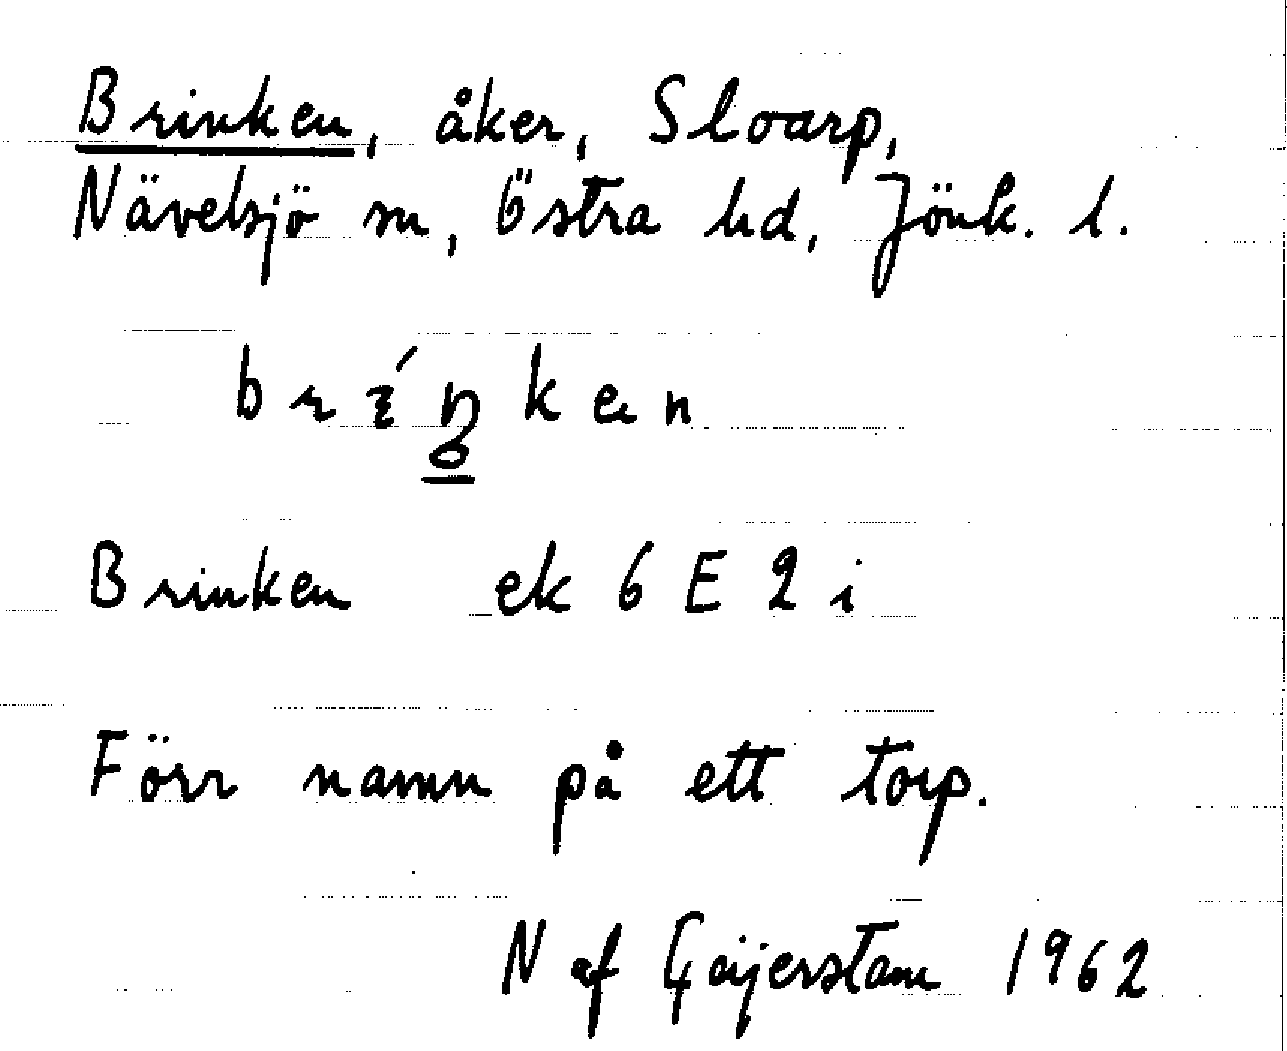 Brinken, åker, Sloarp,
Nävelsjö sn, Östra hd, Jönk. l.
Brinken ek 6 E 2 i
Förr namn på ett torp.
N af Geijerstam 1962